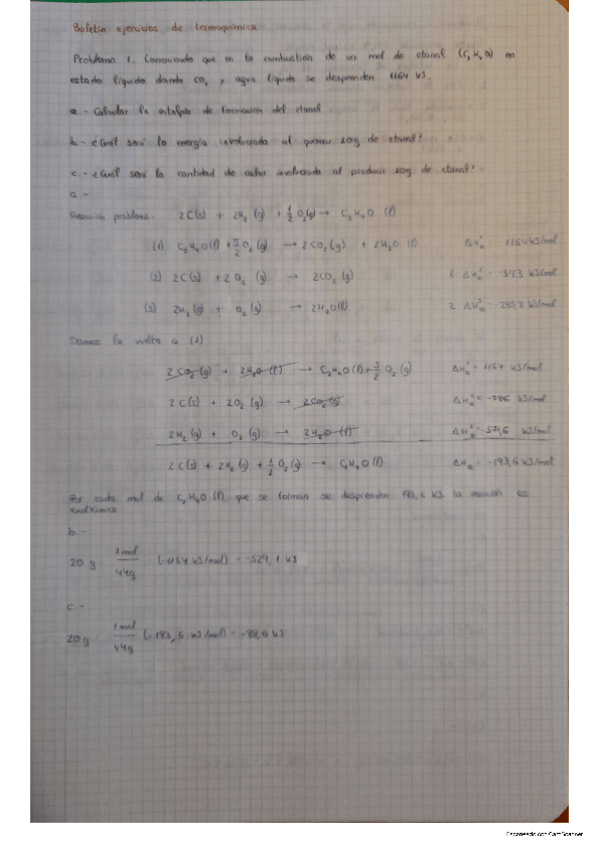 Boletín ejercicios de termoquímica
Problema 1. Conociendo que en la combustión de un mol de etanal (C₂H₄O) en
estado líquido dando CO₂ y agua líquida se desprenden 1164 kJ.
a.- Calcular la entalpía de formación del etanal
b.- ¿Cuál será la energía involucrada al quemar 20g de etanal?
c.- ¿Cuál será la cantidad de calor involucrada al producir 20g de etanal?
a.-
Reacción problema: 2C(s) + 2H₂(g) + 1/2 O₂(g) → C₂H₄O (l)
(1) C₂H₄O(l) + 5/2 O₂(g) → 2CO₂(g) + 2H₂O (l) ΔH = -1164 kJ/mol
(2) 2C(s) + 2O₂(g) → 2CO₂(g) 2 ΔH = -393 kJ/mol
(3) 2H₂(g) + O₂(g) → 2H₂O(l) 2 ΔH = -285,8 kJ/mol
Damos la vuelta a (1)
2CO₂(g) + 2H₂O(l) → C₂H₄O(l) + 5/2 O₂(g) ΔH = 1164 kJ/mol
2C(s) + 2O₂(g) → 2CO₂(g) ΔH = -786 kJ/mol
2H₂(g) + O₂(g) → 2H₂O(l) ΔH = -571,6 kJ/mol
2C(s) + 2H₂(g) + 1/2 O₂(g) → C₂H₄O(l) ΔH = -193,6 kJ/mol
Por cada mol de C₂H₄O (l) que se forman se desprenden 193,6 kJ la reacción es
exotérmica
b.-
20 g 1 mol/44g (-1164 kJ/mol) = -529,1 kJ
c.-
20 g 1 mol/44g (-193,6 kJ/mol) = -88,0 kJ
Escaneado con CamScanner